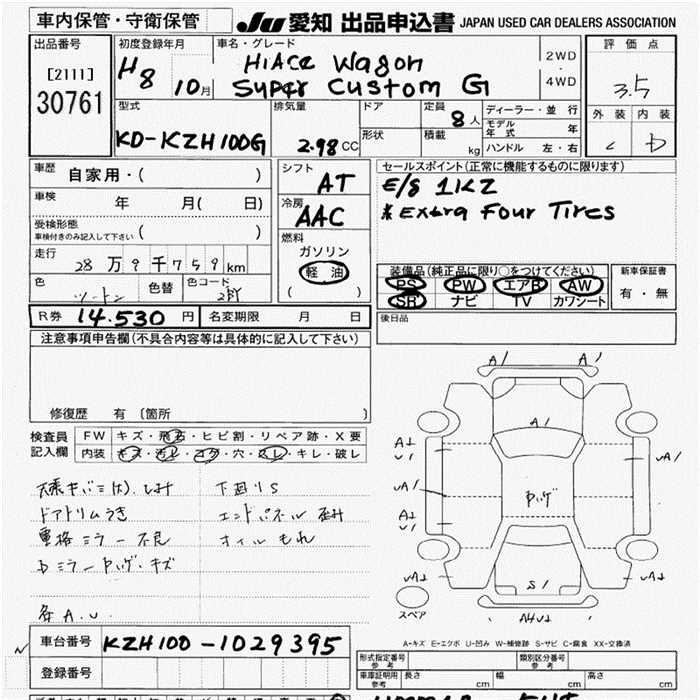 車内保管・守衛保管
JU 愛知 出品申込書 JAPAN USED CAR DEALERS ASSOCIATION
出品番号
[2111]
30761
初度登録年月
H8 10月
車名・グレード
HiAce Wagon
Super Custom G
2WD
・
4WD
評価点
3.5
外装 内装
C D
型式
KD-KZH100G
排気量
2.98 CC
ドア
形状
定員
8人
積載
kg
ディーラー・並行
モデル年式 年
ハンドル 左・右
車歴 自家用・( )
車検 年 月( 日)
受検形態
車検付きのみ記入して下さい ( )
走行
28万9千759km
色
ツートン
色替
色コード
2形
シフト
AT
冷房
AAC
燃料
ガソリン
軽油
( )
セールスポイント(正常に機能するものに限ります)
E/g 1KZ
*Extra Four Tires
装備品(純正品に限り○をつけてください)
PS PW エアB AW
SR ナビ TV カワシート
新車保証書
有・無
R券 14.530円
名変期限 月 日
後日品
注意事項申告欄(不具合内容等は具体的に記入して下さい)
修復歴 有 〔箇所 〕
検査員記入欄
FW キズ・飛石・ヒビ割・リペア跡・X要
内装 キズ・汚レ・コゲ・穴・スレ・キレ・破レ
ドアトリムうき
電格ミラー不良
下廻りS
エンドパネル歪み
オイルもれ
各A.U.
A1 A1
A1
A1
U1
uA1
uA1
A1
U1
uA1
uA1
S1
スペア
A-キズ E-エクボ U-凹み W-補修跡 S-サビ C-腐食 XX-交換済
車台番号 KZH100-1029395
登録番号
形式指定番号
参考
類別区分番号
参考
車庫証明用
参考
長さ cm
幅 cm
高さ cm